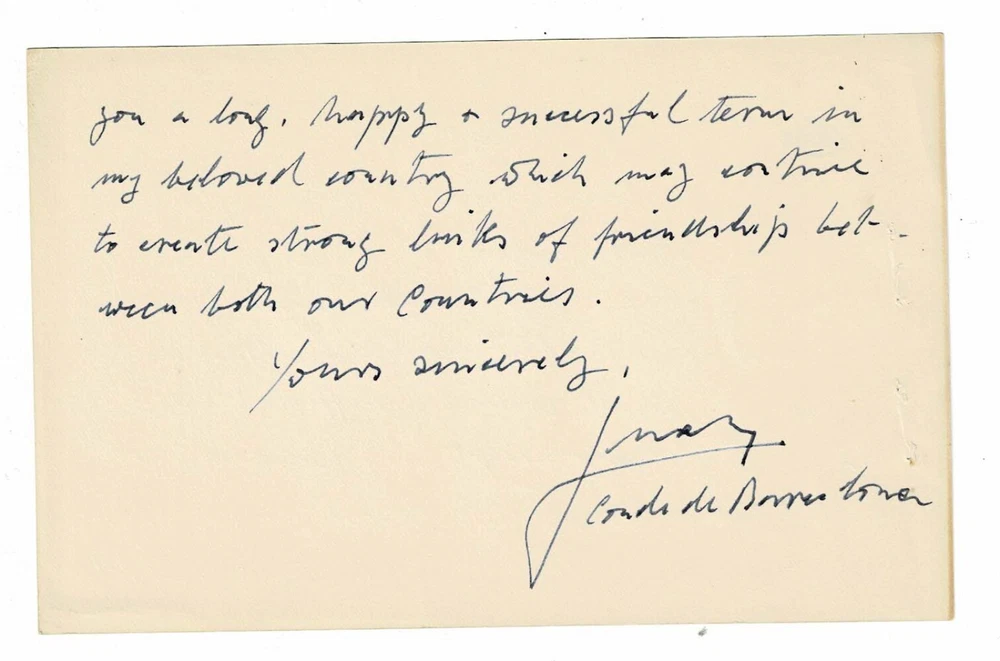 you a long, happy & successful term in
my beloved country which may continue
to create strong links of friendship bet-
ween both our Countries.
Yours sincerely,
Juan
Conde de Barcelona